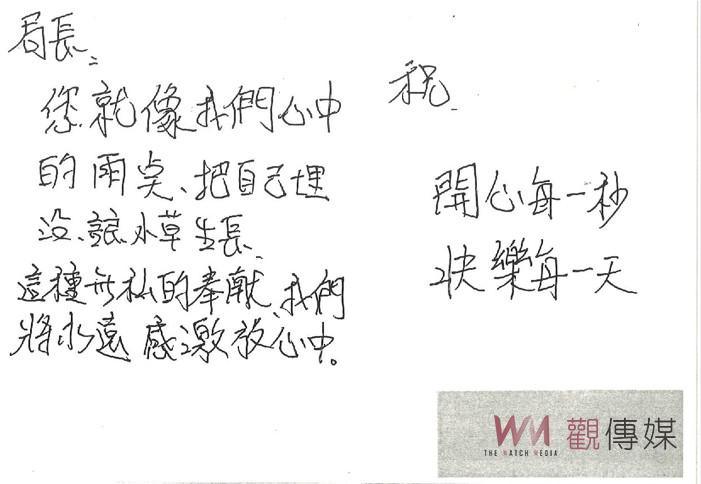 局長：
您就像我們心中
的雨点、把自己埋
没、讓小草生長、
這種無私的奉獻、我們
將永遠感激放心中。
祝
開心每一秒
快樂每一天
WM 觀傳媒
THE WATCH MEDIA